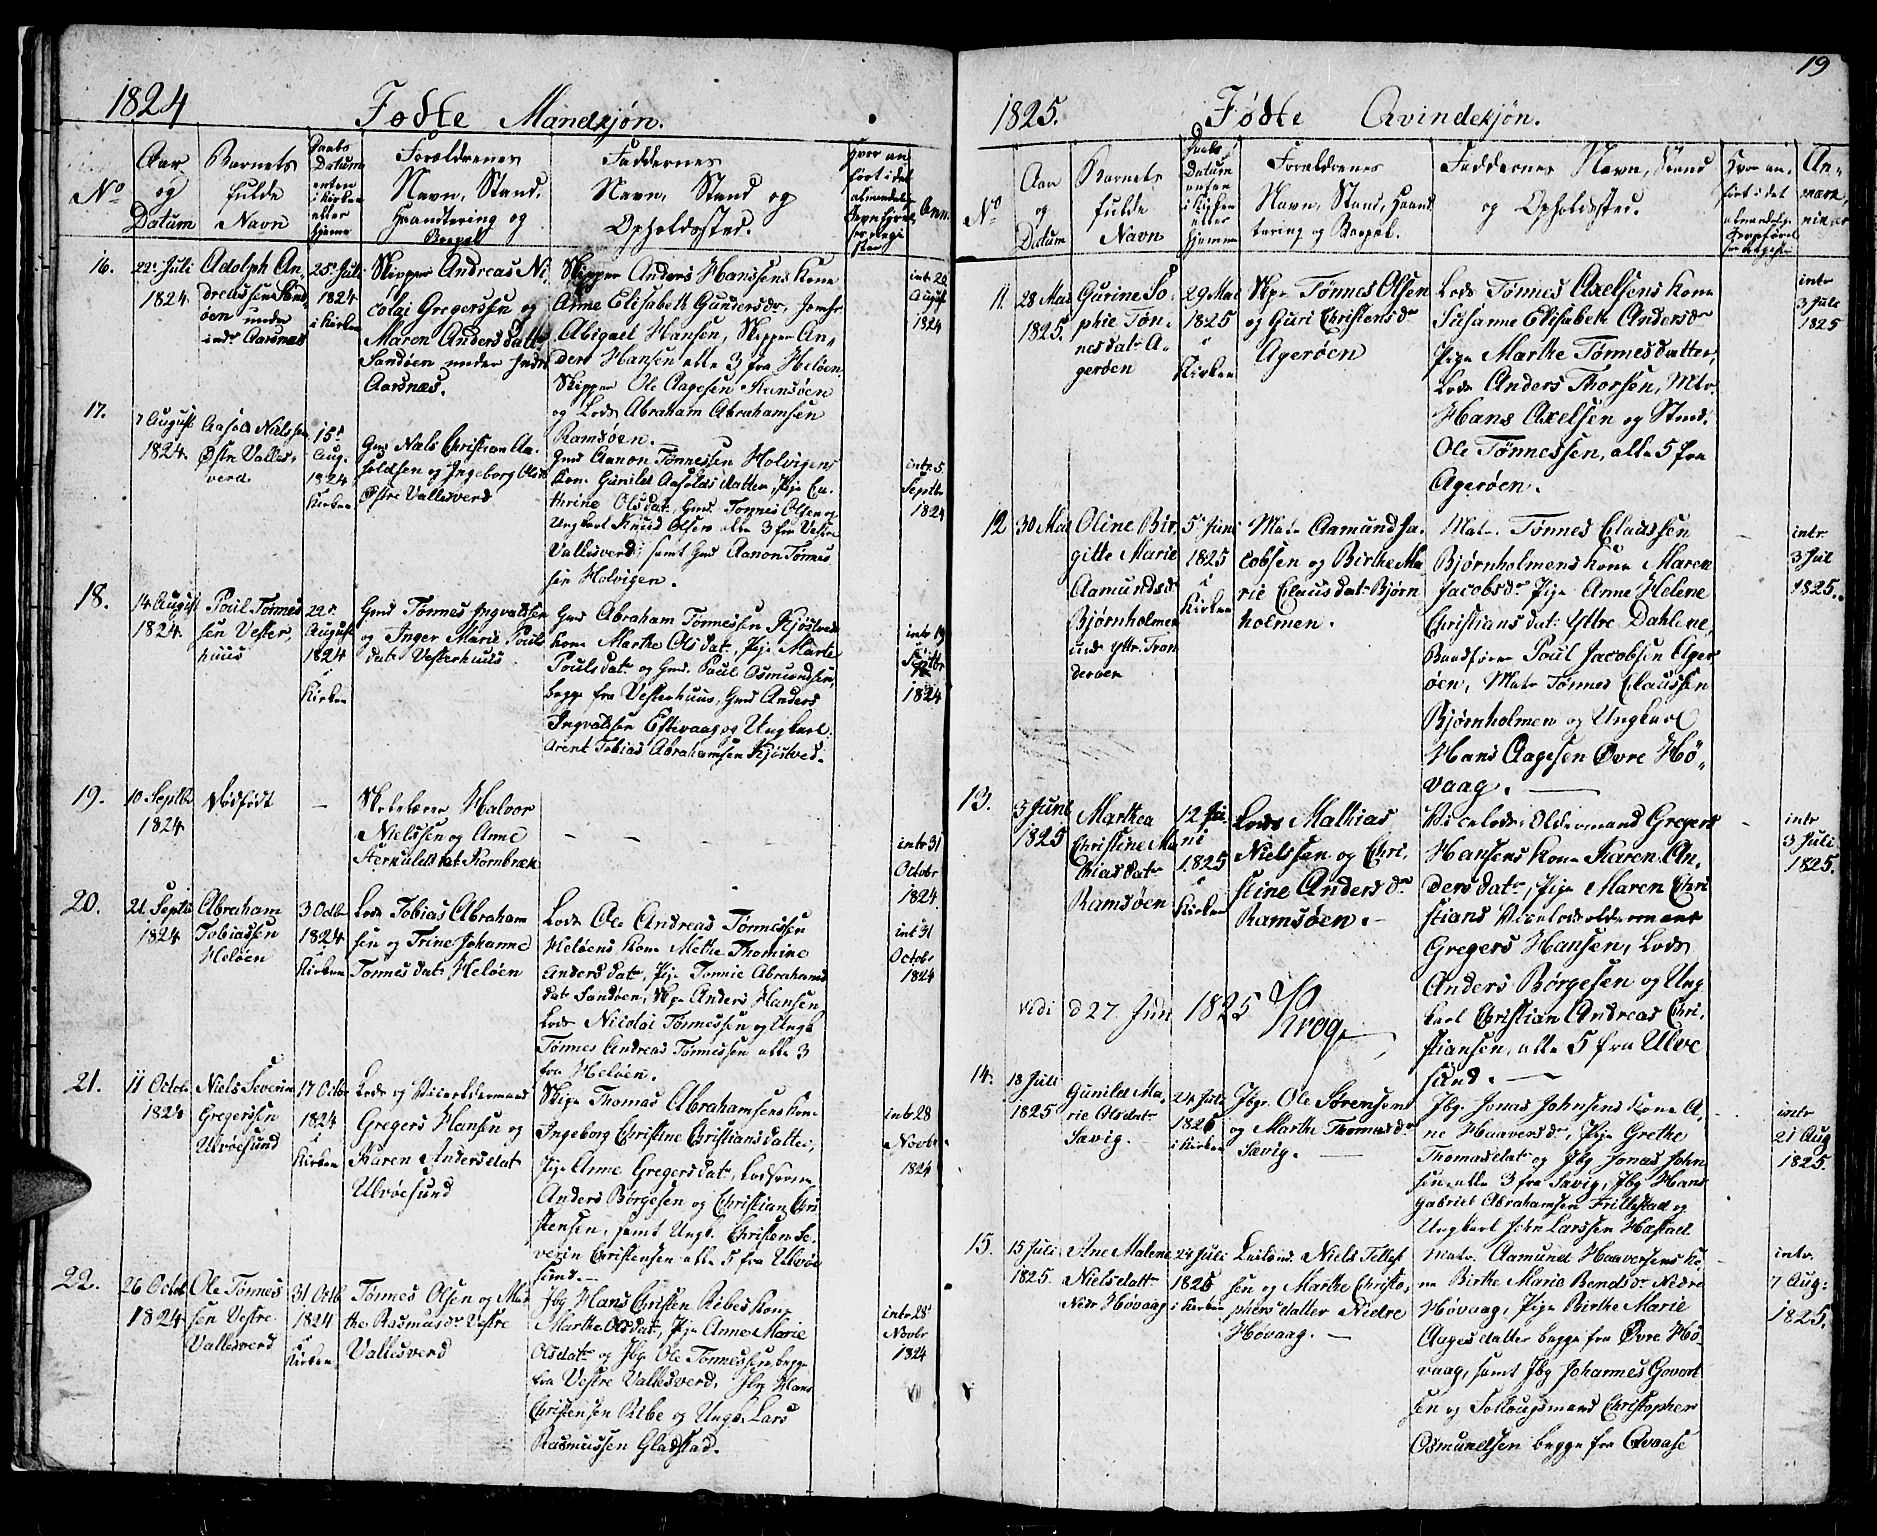 1824
Fødte Mandkjøn.
No
Aar
og
Datum
Barnets
fulde
Navn
Daabs
Datum
enten
i Kirken
eller
hjemme
Forældrenes
Navn, Stand,
Haandtering og
Boepæl
Faddernes
Navn, Stand og
Opholdssted.
Hvor an
ført i det
almindelige
Jevnførel
ses Regi
ster
Anm.
16.
22de Juli
1824
Adolph An,
dreassen Sand
øen under
indr Aarsnæs
25de Juli
1824
i Kirken
Skipper Andreas Ni,
colai Gregersen og
Maren Andersdattr
Sandøen under Indre
Aarsnæs.
Skipper Anders Hanssens Kone
Anne Elisabeth Gundersdr, Jomfr
Abigael Hansen, Skipper An,
ders Hansen alle 3 fra Heløen
Skipper Ole Aagesen, Ramsøen
og Lods Abraham Abrahamsen
Ramsøen.
intr 29
August
1824
17.
7 August
1824
Aasold Nielssen
Østre Valles,
verd.
15de
Aug.
1824
Kirken
Gmd Niels Christian Aa,
soldsen og Ingeborg Olsd
Østre Vallesverd
Gmd Aanon Tønnessen Holvigens
Kone Gunild Aasoldsdatter, Pige Ca,
thrine Olsdatr, Gmd Tønnes Olsen og
Ungkarl Knud Olsen alle 3 fra Vestre
Vallesverd, samt Gmd Aanon Tønnes
sen Holvigen.
intr 5
Septbr
1824
18.
14 August
1824
Poul Tønnes
sen Vester,
huus
22de
August
1824
i
Kirken
Gmd Tønnes Ingvaldsen
og Inger Marie Pouls
datr Vesterhuus
Gmd Abraham Tønnessen Kjøstveds
Kone Marthe Olsdatr, Pige Marie
Poulsdatr og Gmd. Poul Osmundsen,
begge fra Vesterhuus, Gmd Anders
Ingvaldsen Eftevaag og Ungkarl
Arent Tobias Abrahamsen Kjøstved.
intr 19
Septbr
1824
19.
10 Septbr
1824
Dødfødt
—
Skolelærer Halvor
Nielssen og Anne
Herkulesdat Kornbræk
—
—
intr 31
Octobr
1824.
20.
21 Septbr
1824
Abraham
Tobiassen
Heløen
3 Octbr
1824
i
Kirken
Lods Tobias Abraham
sen og Trine Johanne
Tønnesdatr Heløen
Lods Ole Andreas Tønnessen
Heløens Kone Methe Thomine
Andersdatr, Pige Tonnie Abrahams
datr Sandøen, Skpr Anders Hansen,
Lods Nicolai Tønnessen og Ungk
Tønnes Andreas Tønnessen alle 3
fra Heløen.
intr 31
Octobr
1824
21.
11 Octobr
1824
Niels Severin
Gregerssen
Ulvøesund
17 Octbr
1824
i
Kirken
Lods og Viceoldermand
Gregers Hansen og
Karen Andersdat
Ulvøesund
Skipr Thomas Abrahamsens Kone
Ingeborg Christine Christiansdatter,
Pige Anne Gregersdatr, Lodserne
Anders Børgesen og Christian Chri
stensen, samt Ungk. Christen Se,
verin Christensen alle 5 fra Ulvøe
sund.
intr 28
Novbr.
1824
22.
26 Octobr
1824
Ole Tønnes
sen Vestre
Vallesverd
31 Octb
1824
i
Kirken
Tønnes Olsen og Mar
the Rasmusdr Vestre
Vallesverd
Jbg Hans Christen Ribes Kone
Marthe Olsdatr, Pige Anne Marie
Olsdatr og Jbg Ole Tønnessen begge
fra Vestre Vallesverd, Jbg Hans
Christensen Ribe og Ungk. Lars
Rasmussen Gladstad.
intr 28
Novbr
1824
19
1825.
Fødte Qvindekjøn.
No
Aar
og
Datum
Barnets
fulde
Navn
Daabs
Datum
enten
i Kirken
eller
hjemme
Forældrenes
Navn, Stand, Haand
tering og Boepæl.
Faddernes Navn, Stand
og Opholdssted.
Hvor an,
ført i det
almindelige
Jevnførel
ses Registr
An,
mærk,
ninger
11.
28 Mai
1825.
Gurine So,
phie Tøn,
nesdatr A,
gerøen
29 Mai
1825
i
Kirken
Skpr Tønnes Olsen
og Guri Christensdr
Agerøen
Lods Tønnes Axelsens Kone
Susanne Elisabeth Andersdr
Pige Marthe Tønnesdatter,
Lods Anders Thorsen, Mtr.
Hans Axelsen og Stud.
Ole Tønnessen, alle 5 fra
Agerøen.
intr
3 Juli
1825
12
30 Mai
Oline Bir,
gitte Marie
Aamundsd.
Bjørnholmen
und. Yttr. Tron
derøen
5te Juni
1825
i
Kirken
Matr Aamund Ja,
cobsen og Birthe Ma
rie Clausdatr Bjørn
holmen.
Matr. Tønnes Claussen
Bjørnholmens Kone Maren
Jacobsdr Pige Anne Helene
Christiansdatr Yttre Dahlene,
Baadfører Poul Jacobsen Ager
øen, Matr Tønnes Claussen
Bjørnholmen og Ungkarl
Hans Aagesen Øvre Hø,
vaag.
intr
3 Jul
1825.
13.
3 Juni
1825
Marthea
Christine Ma
thiasdatr
Ramsøen
12 Ju
ni
1825
i
Kirken
Lods Mathias
Nielssen og Chri,
stine Andersdr
Ramsøen.
Vicelods Oldermand Gregers
Hansens Kone Karen An,
dersdatr, Pige Maren Chri
stians Vicelodsoldermand
Gregers Hansen, Lods
Anders Børgesen og Ung
karl Christian Andreas Chri,
stiansen, alle 5 fra Ulvø
sund.
intr
3 Juli
1825.
vidi d 27 Jun 1825 Krog
14.
18 Juli
1825
Gunild Ma,
rie Olsdatr
Sævig.
24 Juli
1825
i Kirken
Jbgr Ole Sørensen
og Marthe Thomasdr
Sævig.
Jbg. Jonas Johnsens Kone A,
ne Haaversdr, Pige Grethe
Thomasdatr og Jbg Jonas John
sen alle 3 fra Sævig, Jbg Hans
Gabriel Abrahamsen Frillestad og
Ungkarl John Larssen Hæstad
intr
21 Aug
1825.
15.
15 Juli
1825.
Ane Malene
Nielsdattr
Nedr Høvaag
24 Juli
1825
i Kirken
Niels Tellef
sen og Marthe Christo,
phersdatter Nedre
Høvaag.
Matr. Aamund Haaversens Ko
ne Birthe Marie Bendtsdr Nedre
Høvaag, Pige Birthe Marie
Aagesdatter begge fra Øvre Hø,
vaag, samt Jbg Johannes Govert
sen og Sollougsmand Christopher
Osmundsen begge fra Qvaase
intr
7 Aug:
1825.